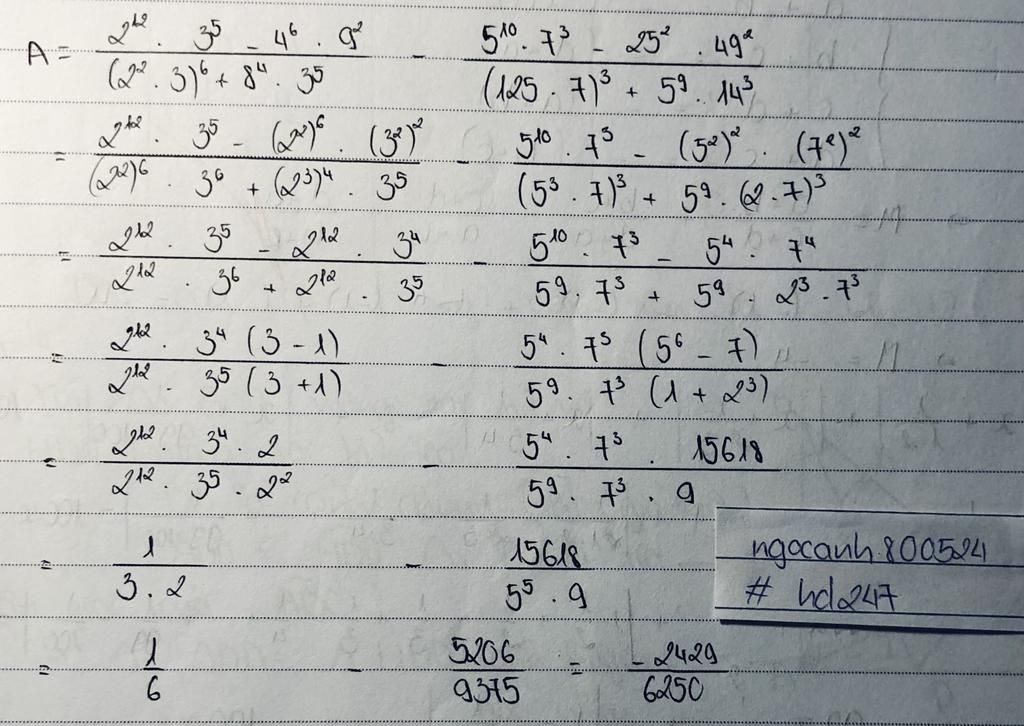 A = \frac{2^{12} . 3^5 - 4^6 . 9^2}{(2^2 . 3)^6 + 8^4 . 3^5} - \frac{5^{10} . 7^3 - 25^2 . 49^2}{(125 . 7)^3 + 5^9 . 14^3}
= \frac{2^{12} . 3^5 - (2^2)^6 . (3^2)^2}{(2^2)^6 . 3^6 + (2^3)^4 . 3^5} - \frac{5^{10} . 7^3 - (5^2)^2 . (7^2)^2}{(5^3 . 7)^3 + 5^9 . (2 . 7)^3}
= \frac{2^{12} . 3^5 - 2^{12} . 3^4}{2^{12} . 3^6 + 2^{12} . 3^5} - \frac{5^{10} . 7^3 - 5^4 . 7^4}{5^9 . 7^3 + 5^9 . 2^3 . 7^3}
= \frac{2^{12} . 3^4 (3 - 1)}{2^{12} . 3^5 (3 + 1)} - \frac{5^4 . 7^3 (5^6 - 7)}{5^9 . 7^3 (1 + 2^3)}
= \frac{2^{12} . 3^4 . 2}{2^{12} . 3^5 . 2^2} - \frac{5^4 . 7^3 . 15618}{5^9 . 7^3 . 9}
= \frac{1}{3 . 2} - \frac{15618}{5^5 . 9}
= \frac{1}{6} - \frac{5206}{9375} = \frac{-2429}{6250}
ngocanh.800524
# hd247